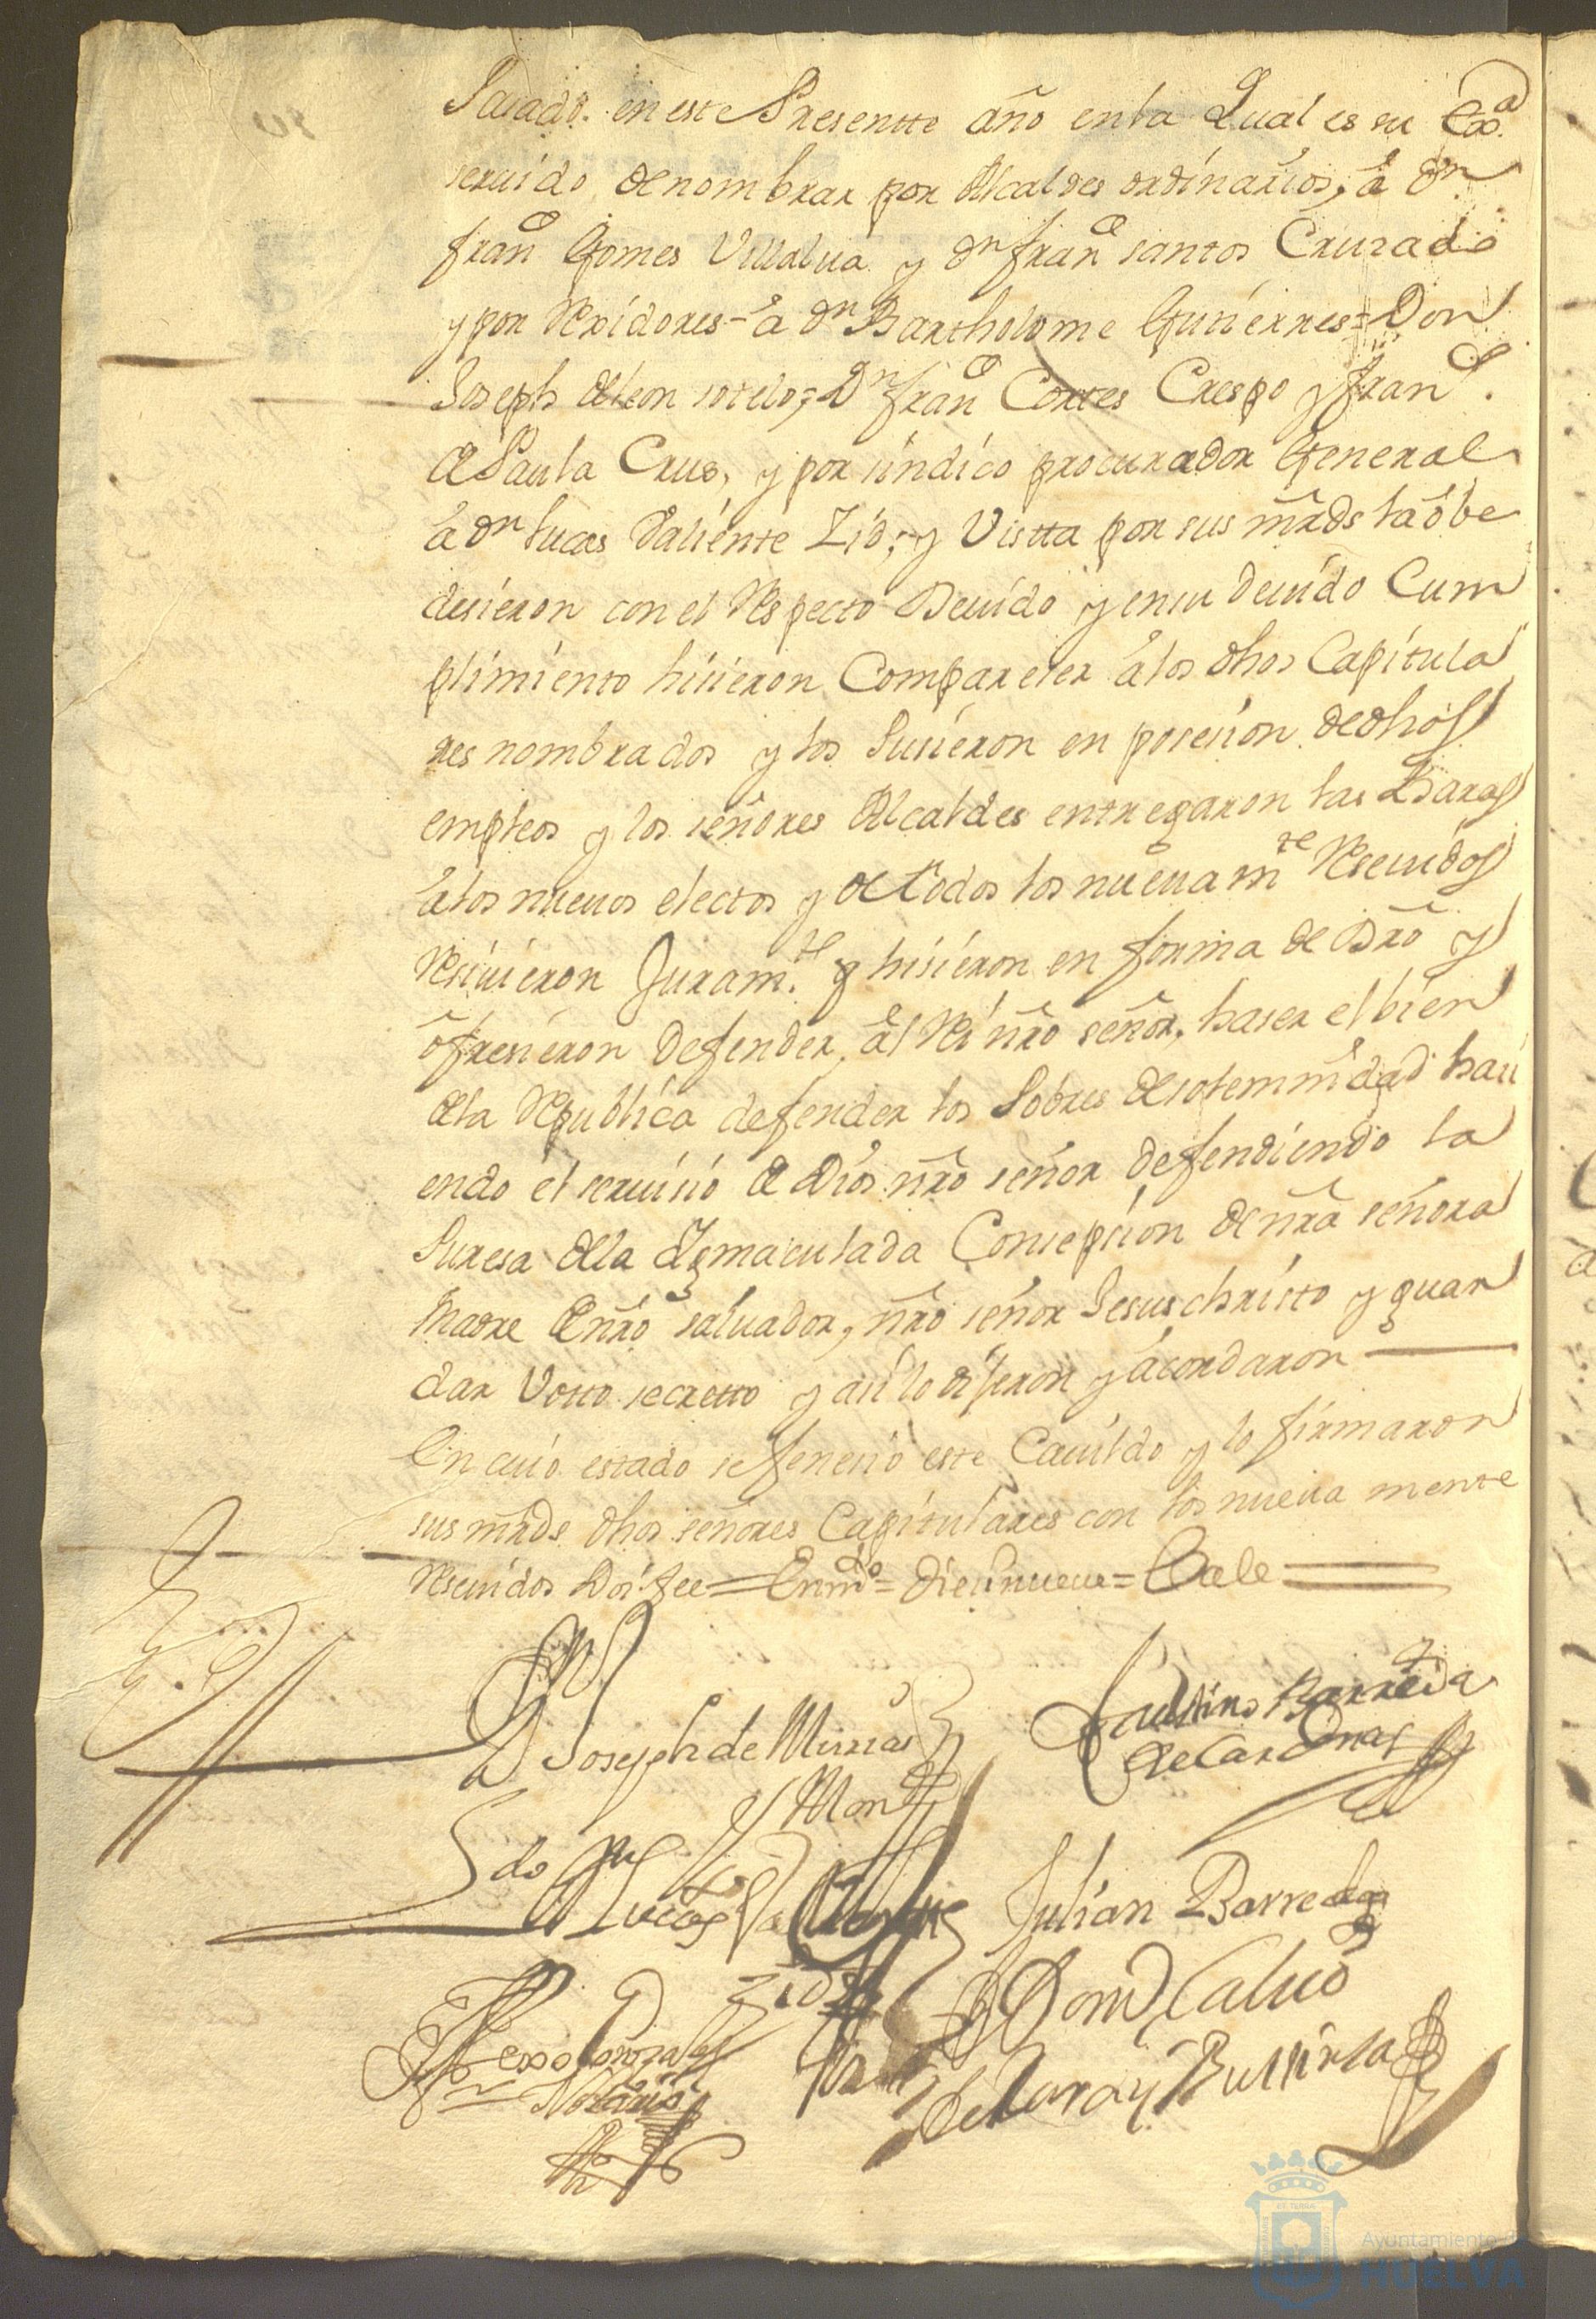 Pasado en este Presentte año en la Qual es su Exª
seruido de nombrar por Alcaldes ordinarios, a Dn
franco Gomes Villalua y Dn franco santos Cruzado
y por Rexidores = a Dn Bartholome Gutierres = Don
Joseph de leon sotelo; Dn franco Cortes Crespo y franco
de Paula Crus, y por sindico procurador General
a Dn lucas Valiente Zid; y Vistta por sus mrds la obe
desieron con el Respecto Deuido y en su deuido Cum
plimiento hisieron Compareser a los dhos Capitula
res nombrados y los Pusieron en posesion de dhos
empleos y los señores Alcaldes entregaron las Baras
a los nueuos electos y de todos los nueuamte Reseuidos
Resiuieron Juramte y hisieron en forma de Dro y
ofresieron Defender, al Rei nro señor, haser el bien
de la Republica defender los Pobres de solemnidad hasi
endo el seruisio de Dios nro señor defendiendo la
Puresa de la Ynmaculada Consepsion de nra señora
Madre de nro saluador, nro señor Jesuschristo y guar
dar Votto secretto y asi lo dijeron y acordaron
En cuio estado se fenesio este Cauildo y lo firmaron
sus mrds dhos señores Capitulares con los nueua mente
Reseuidos Doi fee = Enmdo = diesinueue = Vale
Dn Joseph de Mirras
y Mon
Faustino Barreda
de Cardenas
Lucas Valiente
Zid
Julian Barreda
Domo Caluo
de Luna y Bullirsa
Alexo Gonzales
Notario
Ayuntamiento de
HUELVA